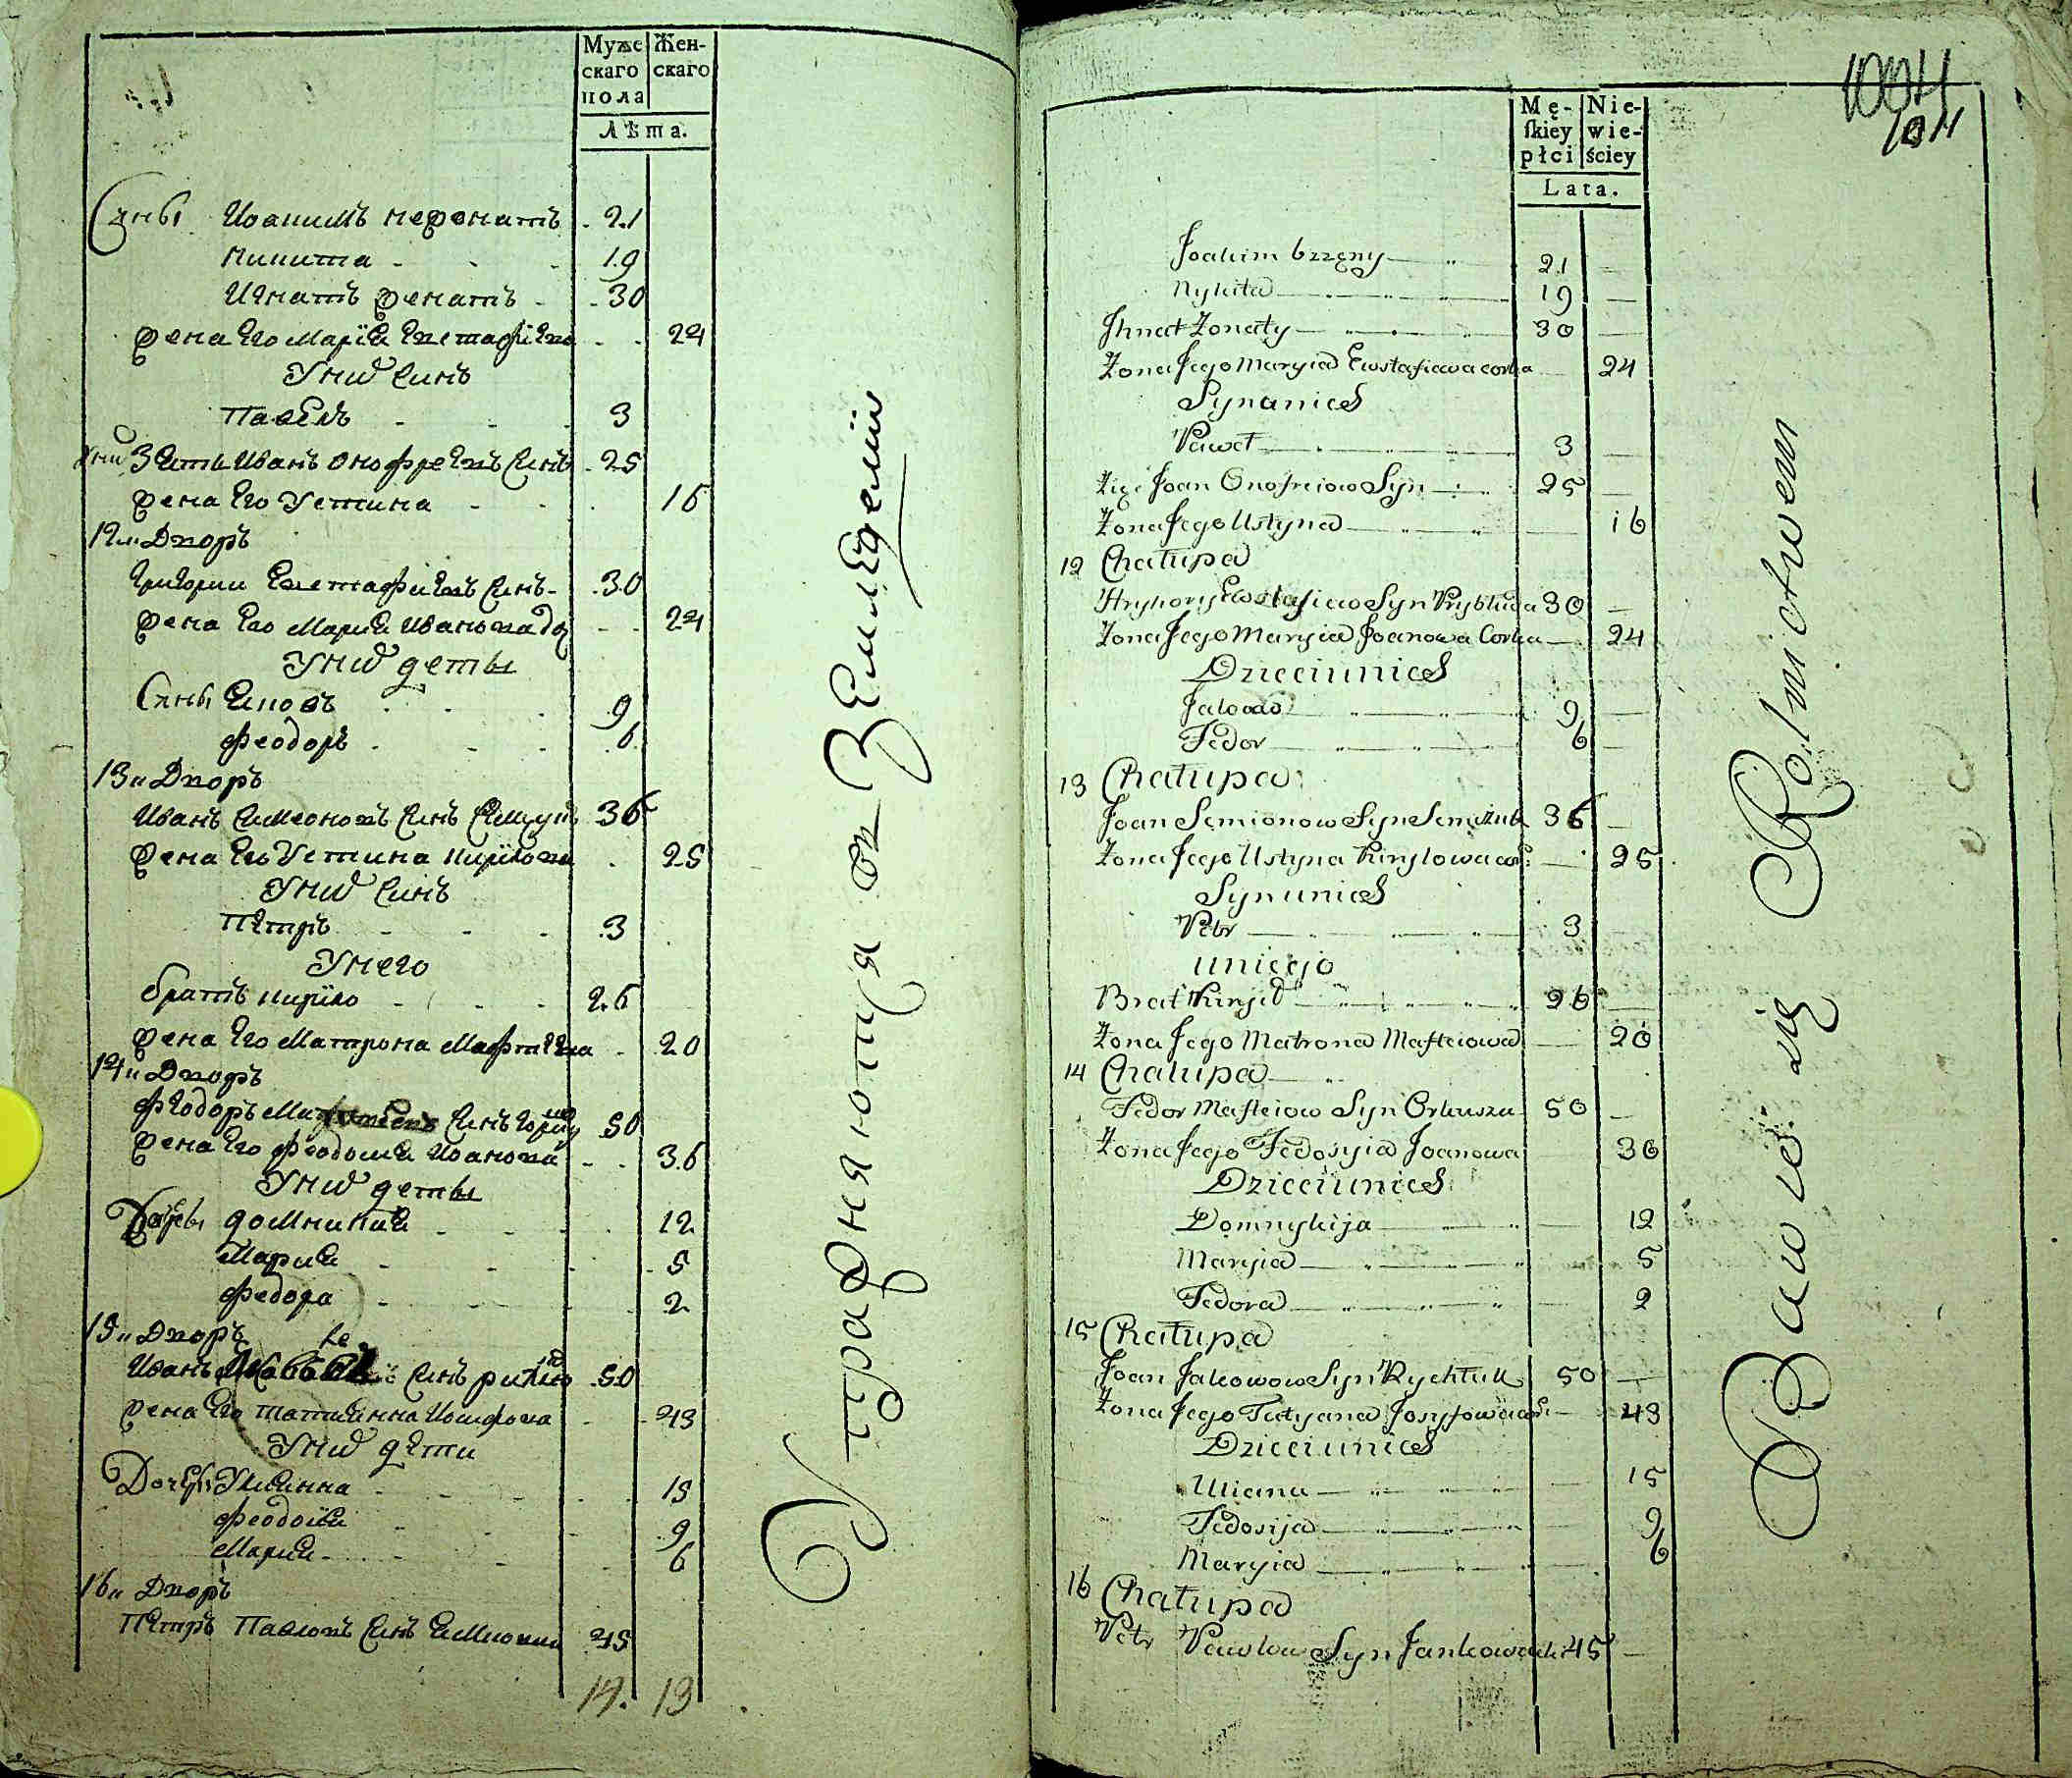 Муже Жен-
скаго скаго
пола
Лѣта.
Сины Иоакимъ нежонатъ 21
Никита 19
Игнатъ женатъ 30
жена Его Мария Евстафиева 24
У них синъ
Павелъ 3
Зять Иванъ Онофреевъ Синъ 25
жена Его Устина 16
12й Дворъ
Григории Евстафиевъ Синъ 30
жена Его Мария Иванова до 24
У них деты
Сины Яковъ 9
Феодоръ 6
13й Дворъ
Иванъ Симеоновъ Синъ 36
жена Его Устина Кирилова 25
У них Синъ
Петръ 3
У него
братъ Кирило 26
жена Его Матрона Мафтеева 20
14й Дворъ
Феодоръ Синъ 50
жена Его Феодосия Иванова 36
У них деты
Дочеры Домникия 12
Мария 5
Федора 2
15й Дворъ
Иванъ Синъ 50
жена Его Татиянна Иосифова 43
У них дети
Дочеры Улиянна 15
Феодосия 9
Мария 6
16й Дворъ
Петръ Павловъ Синъ 45
14. 13
Упражняются въ Земледелии
1004
104
Mę- Nie-
skiey wie-
płci ściey
Lata.
Joakim bezzęny 21
Nykita 19
Ihnat Zonaty 30
Zona Jego Maryia Ewstafiewa corka 24
Syn u nich
Paweł 3
Zięć Joan Onofreiow Syn 25
Zona Jego Ustyna 16
12 Chałupa
Hryhory Ewstafiew Syn Prybłuda 30
Zona Jego Maryia Joanowa Corka 24
Dzieci u nich
Jakow 9
Fedor 6
13 Chałupa
Joan Semionow Syn 36
Zona Jego Ustyna Kiryłowa cor: 25
Syn u nich
Petr 3
u niego
Brat Kirył 26
Zona Jego Matrona Mafteiowa 20
14 Chałupa
Fedor Mafteiow Syn 50
Zona Jego Fedosyia Joanowa 36
Dzieci u nich
Domnykija 12
Maryia 5
Fedora 2
15 Chałupa
Joan Jakowow Syn 50
Zona Jego Tatyana Josyfowa cor: 43
Dzieci u nich
Uliana 15
Fedosija 9
Maryia 6
16 Chałupa
Petr Pawłow Syn Jankowski 45
Bawią się Rolnictwem